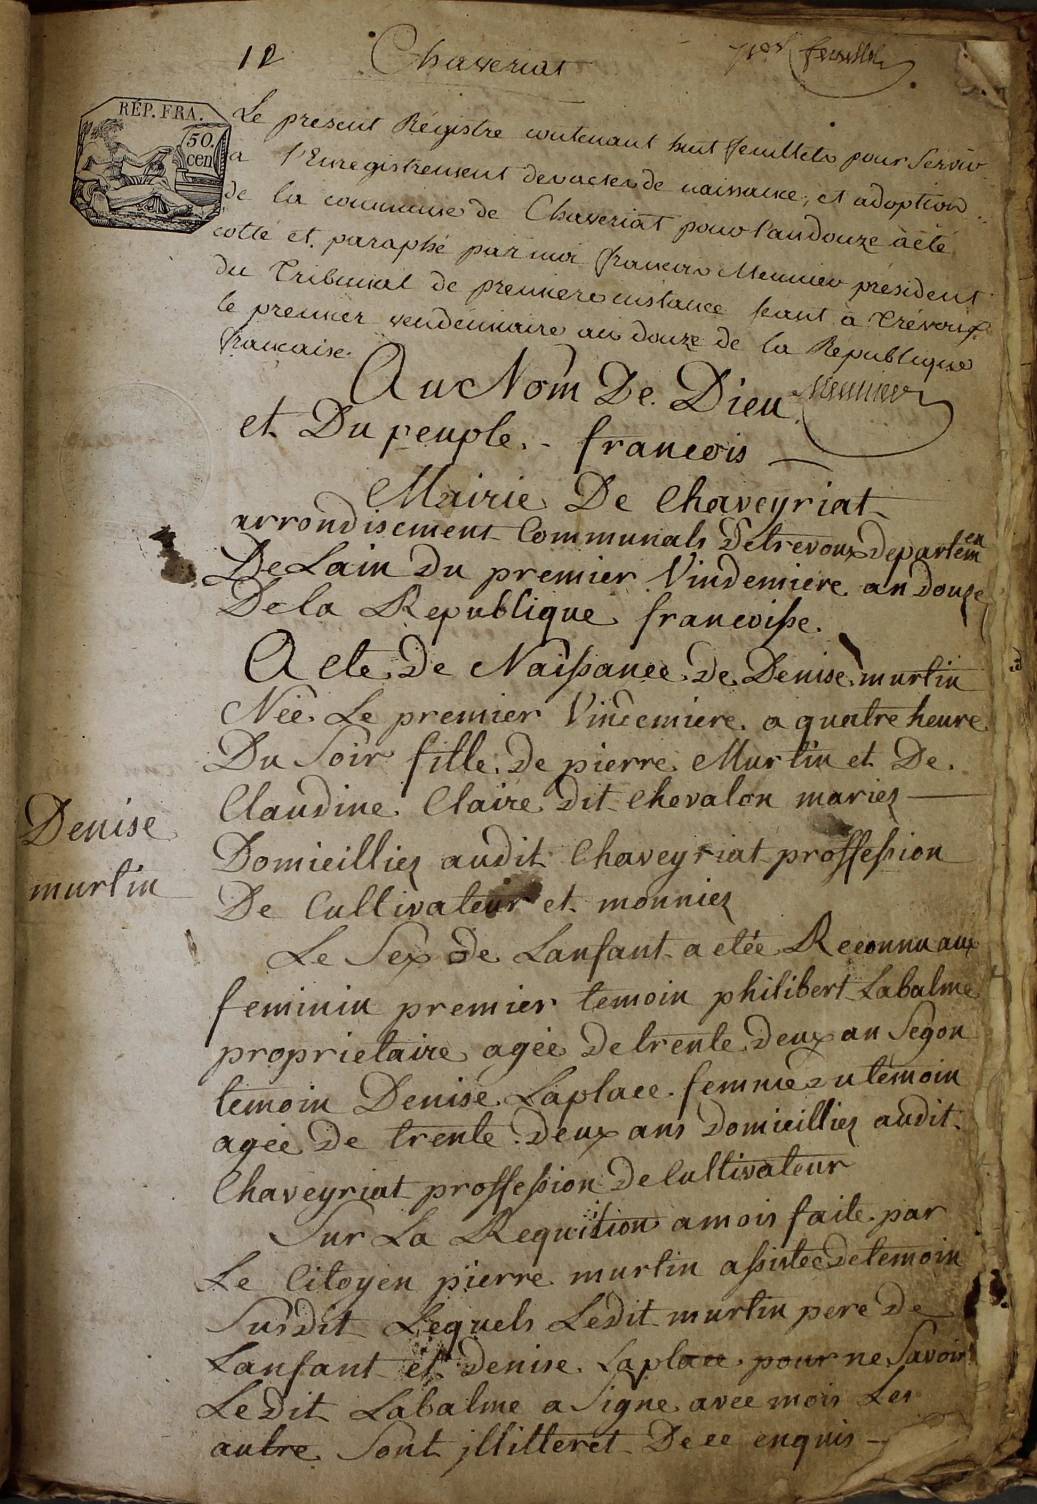 12 Chaveriat 1er feuillet
RÉP. FRA.
50.
cen
Le present Régistre contenant huit feuillets pour servir
a l'Enregistrement des actes de naissance, et adoption
de la commune de Chaveriat pour l'an douze à été
cotté et paraphé par moi françois Meunier président
du Tribunal de premiere instance seant à Trévoux
le premier vendemiaire an douze de la Republique
francaise.
Meunier
Au Nom De Dieu
et Du peuple - francois
Mairie De Chaveyriat
arrondisement Communals De trevoux departemen
De Lain du premier Vindemiere an douze
De la Republique francoisse.
Acte de Naissance de Denise murtin
Néé Le premier Vindemiere a quatre heure
Du Soir fille de pierre Murtin et De
Claudine Claire dit Chevalon mariez
Domicilliez audit Chaveyriat proffession
De Cultivateur et monniez
Denise
murtin
Le Sex de Lanfant a etée Reconnu aux
feminin premier temoin philibert Labalme
proprietaire ageé de trente deux an Segon
temoin Denise Laplace femme du temoin
ageé de trente deux ans Domicilliez audit
Chaveyriat proffession de Cultivateur
Sur La Requition a mois faite par
Le Citoyen pierre murtin assisteé de temoin
Susdit Lequels Ledit murtin pere de
Lanfant et denise Laplace pour ne Savoir
Ledit Labalme a Signe avec mois Les
autre Sont jllitteret De ce enquis